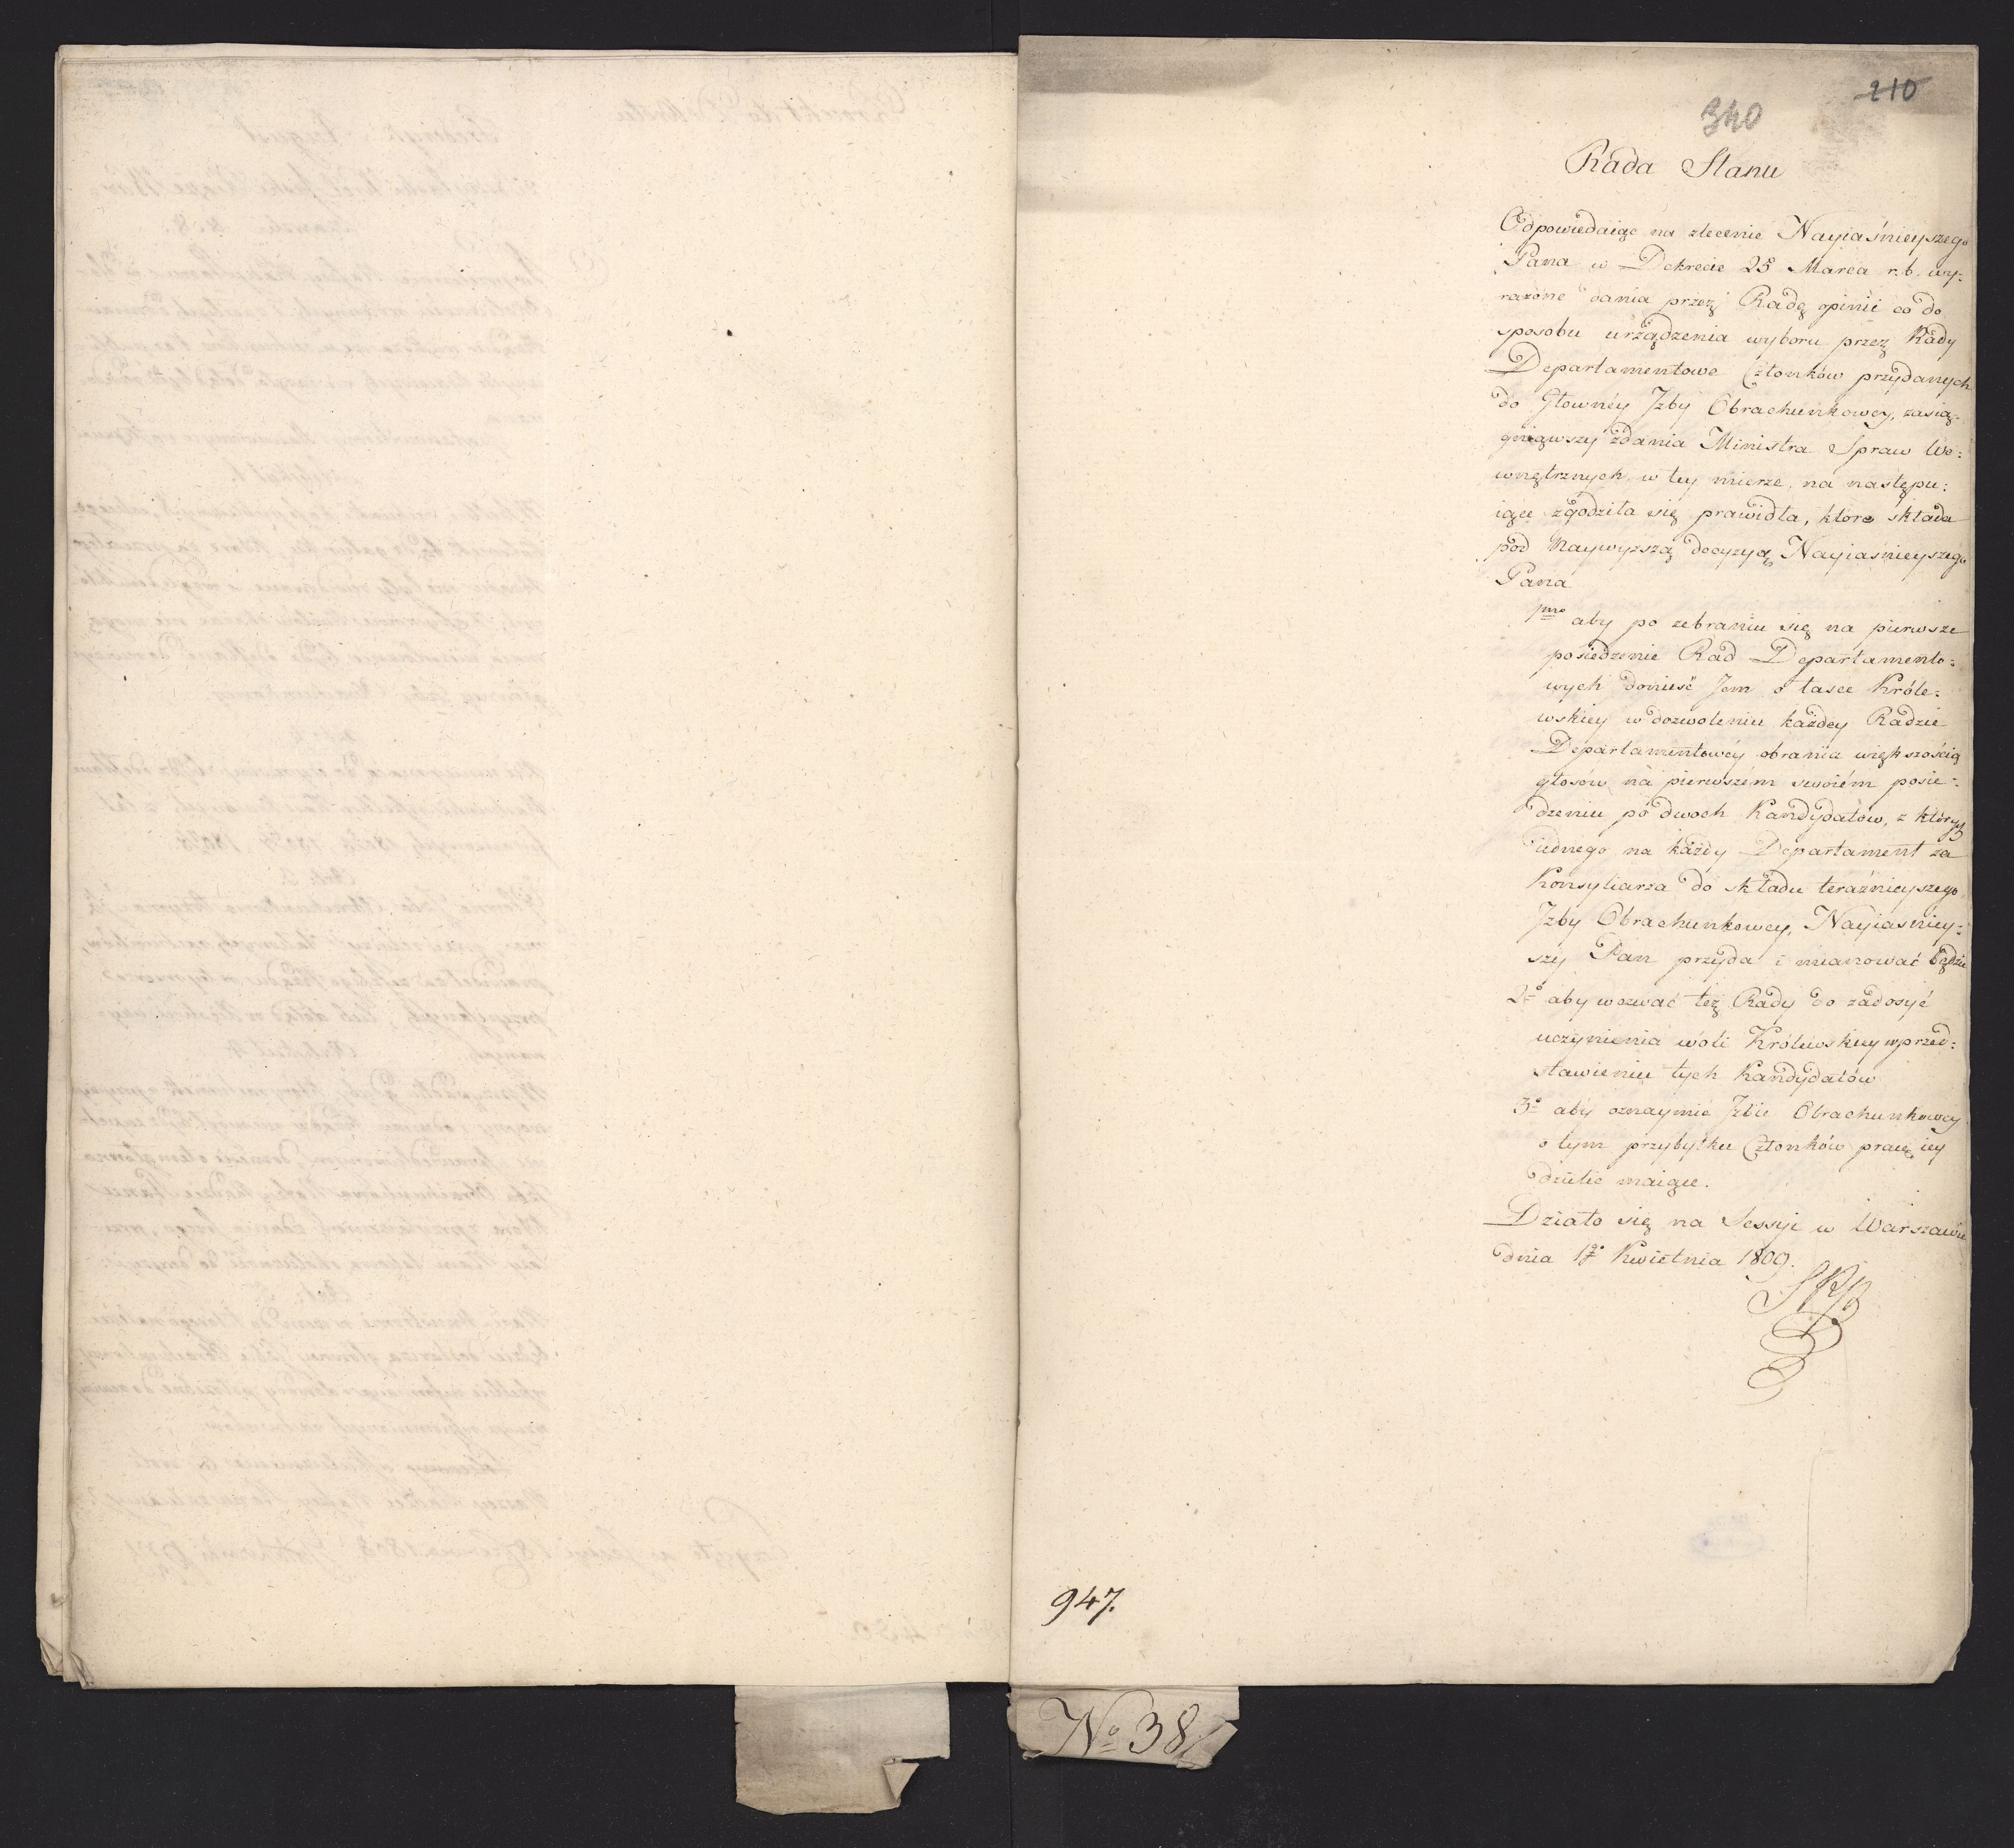 210
340
Rada Stanu
Odpowiedaiąc na zlecenie Nayiaśnieyszego
Pana w Dekrecie 25 Marca r. b. wy:
rażone dania przez Radę opinii co do
sposobu urządzenia wyboru przez Rady
Departamentowe Członków przydanych
do Głowney Jzby Obrachunkowey, zasią:
gnąwszy zdania Ministra Spraw We:
wnętrznych w tey mierze, na następu:
iące zgodziła się prawidła, które składa
pod Naywyższą decyzyą Nayiaśnieyszego
Pana
1mo aby po zebraniu się na pierwsze
posiedzenie Rad Departamento:
wych donieść Jem o łasce Króle:
wskiey w dozwoleniu każdey Radzie
Departamentowey obrania większością
głosów na pierwszém swoiém posie:
dzeniu po dwoch Kandydatów, z których
iednego na każdy Departament za
Konsyliarza do składu teraźnieyszego
Jzby Obrachunkowey, Nayiasniey:
szy Pan przyda i mianować będzie
2o aby wezwać też Rady do zadosyć
uczynienia woli Królewskiey w przed:
stawieniu tych Kandydatów
3o aby oznaymić Jzbie Obrachunkowey
o tym przybytku Członków pracę iey
dzielić maiące.
Działo się na Sessyi w Warszawie
dnia 17 Kwietnia 1809.
947.
No 38